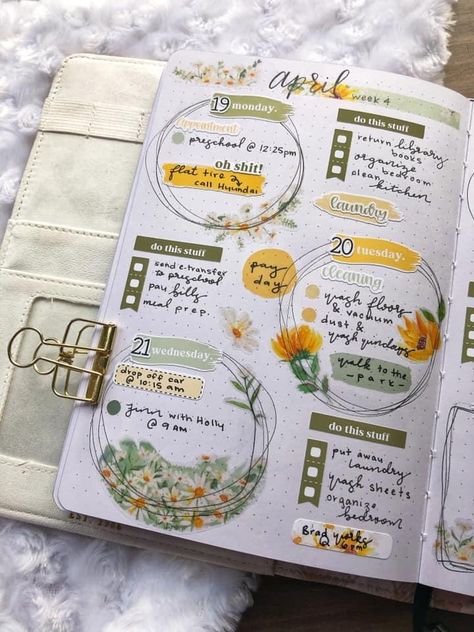 april
week 4
19 monday.
appointment
preschool @ 12:25pm
oh shit!
flat tire
call Hyundai
do this stuff
return library
books
organize
bedroom
clean
kitchen
laundry
do this stuff
send e-transfer
to preschool
pay bills
meal prep.
pay
day
20 tuesday.
cleaning
wash floors
& vacuum
dust &
wash undays
walk to the
- park -
21 wednesday.
drop off car
@ 10:15 am
with Holly
@ 9 AM
do this stuff
put away
laundry
wash sheets
organize
bedroom
Brad works
@ 6pm